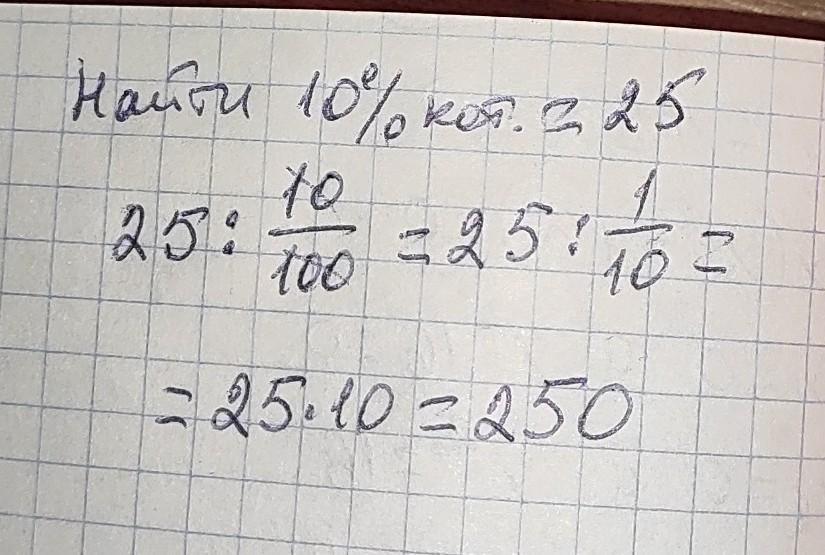 Найти 10% кот. = 25
25 : 10/100 = 25 : 1/10 =
= 25 · 10 = 250